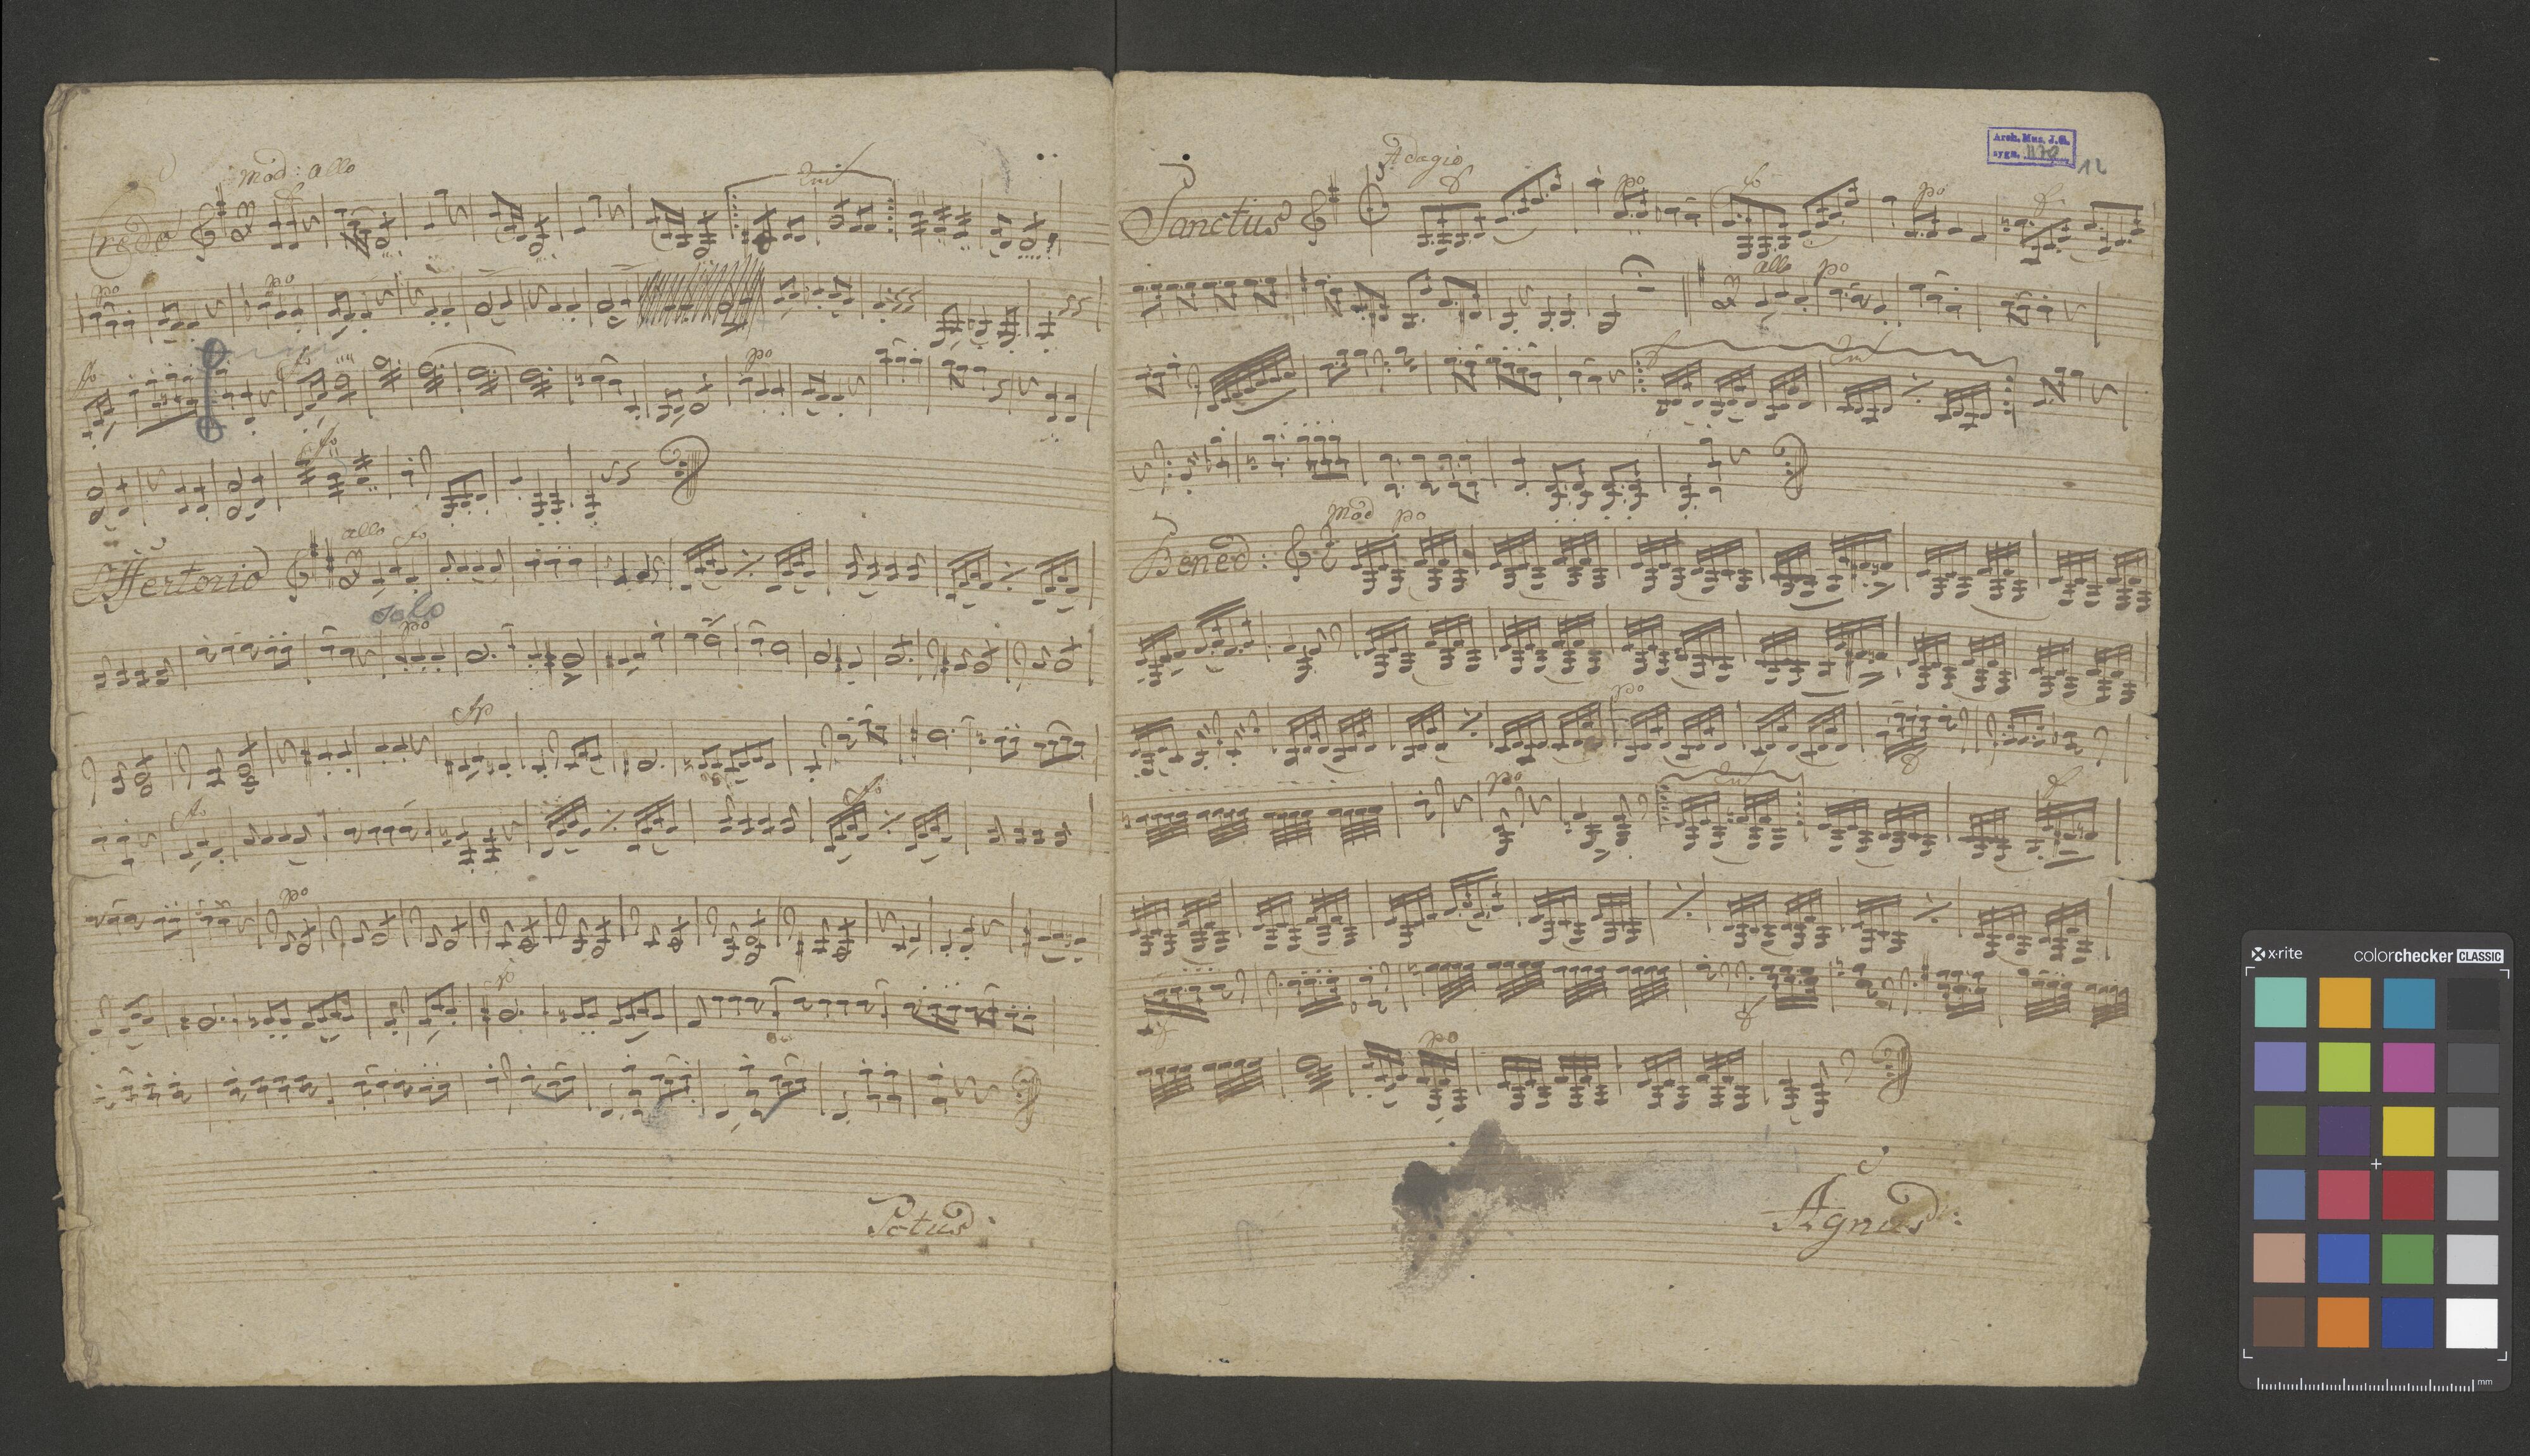 Mod: allo
Credo
po
po
fo
po
fo
allo fo
Offertorio
solo
po
fp
fo
fo
po
fo
Arch. Mus. J.G.
sygn.
12
Adagio
Sanctus
po
fo
po
f
allo po
f
Mod po
Bened:
po
po
f
po
Agnus:
x-rite
colorchecker CLASSIC
mm